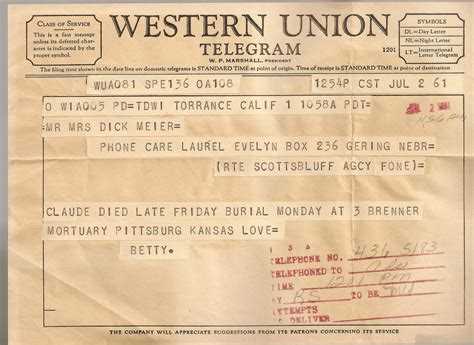 CLASS OF SERVICE
This is a fast message
unless its deferred character
is indicated by the
proper symbol.
WESTERN UNION
TELEGRAM
W. P. MARSHALL, PRESIDENT
1201
SYMBOLS
DL=Day Letter
NL=Night Letter
LT=International Letter Telegram
The filing time shown in the date line on domestic telegrams is STANDARD TIME at point of origin. Time of receipt is STANDARD TIME at point of destination
WUA081 SPE136 OA108
1254P CST JUL 2 61
O WIA005 PD=TDWI TORRANCE CALIF 1 1058A PDT=
MR MRS DICK MEIER=
PHONE CARE LAUREL EVELYN BOX 236 GERING NEBR=
(RTE SCOTTSBLUFF AGCY FONE)=
CLAUDE DIED LATE FRIDAY BURIAL MONDAY AT 3 BRENNER
MORTUARY PITTSBURG KANSAS LOVE=
BETTY=
TELEPHONE NO. 436 5183
TELEPHONED TO
TIME
BY RS TO BE
ATTEMPTS
TO DELIVER
THE COMPANY WILL APPRECIATE SUGGESTIONS FROM ITS PATRONS CONCERNING ITS SERVICE